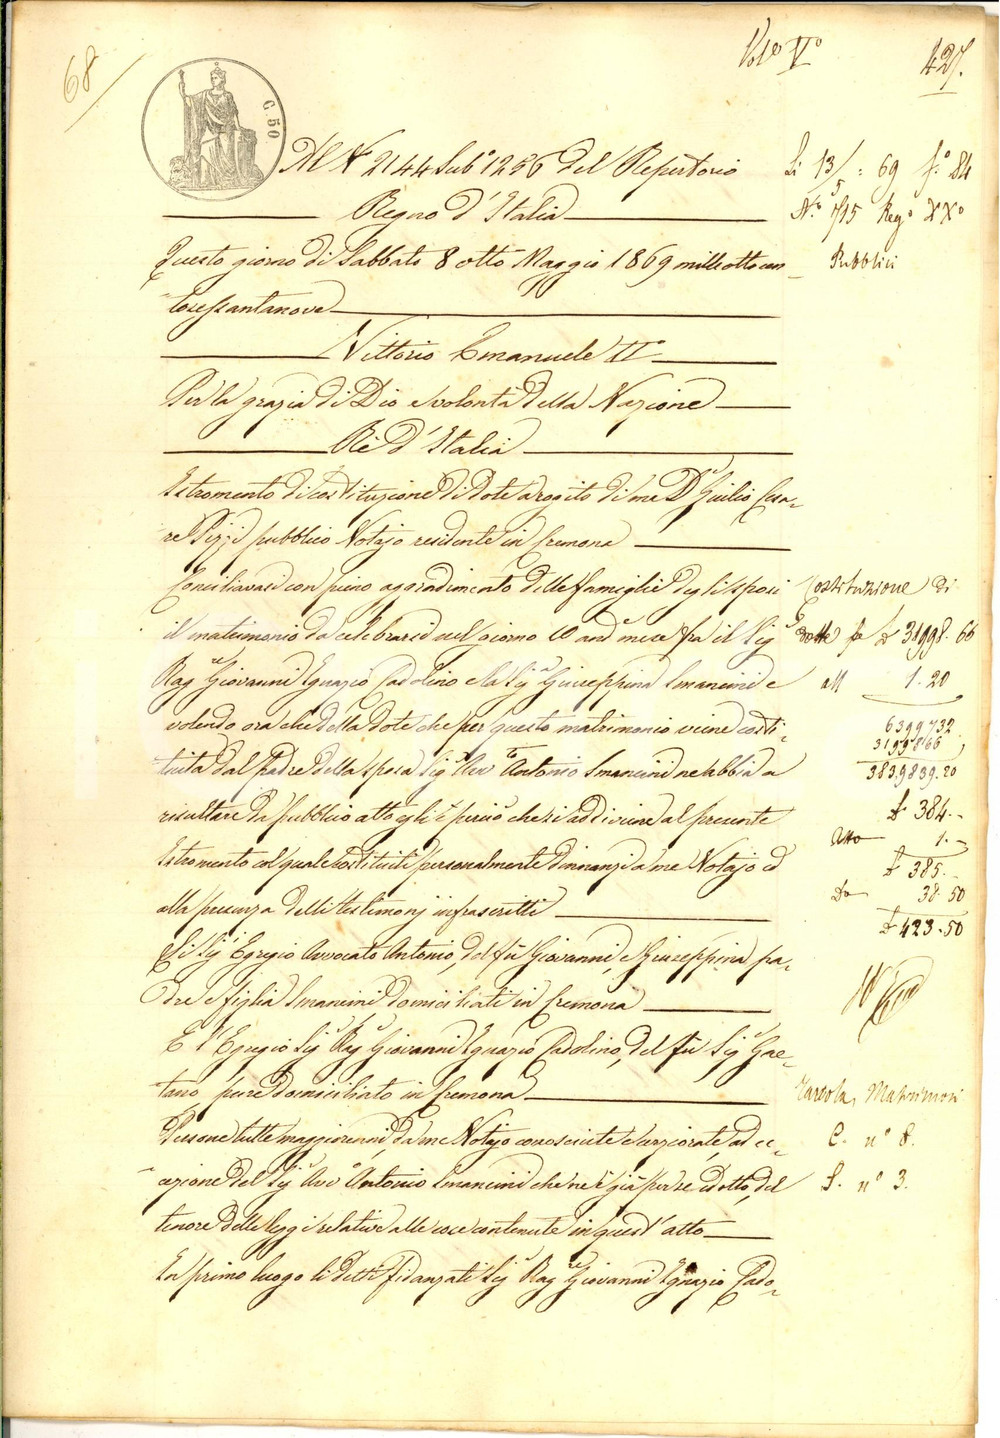 68
Vol° V°
427.
C. 50
Al N° 2144 Sub° 1256 del Repertorio
Regno d'Italia
Questo giorno di Sabbato 8 otto Maggio 1869 mille otto cen
tosessantanove
Vittorio Emanuele II°
Per la grazia di Dio e volontà della Nazione
Rè d'Italia
Istromento di costituzione di dote a rogito di me Dr Giulio Cesa-
re Pizzi pubblico Notajo residente in Cremona
Conciliavasi con pieno aggradimento delle famiglie degli sposi
il matrimonio da celebrarsi nel giorno 10 and.e mese fra il Sig.r
Rag.re Giovanni Ignazio Cadolino e la Sig.a Giuseppina Smancini e
volendo ora che della dote che per questo matrimonio viene costi-
tuita dal padre della sposa Sig.r Avv.to Antonio Smancini ne abbia a
risultare da pubblico atto egli è perciò che si addiviene al presente
Istromento col quale costituiti personalmente dinnanzi a me Notajo ed
alla presenza delli testimonj infrascritti
Li Sig.i Egregio Avvocato Antonio, del fù Giovanni, e Giuseppina pa-
dre e figlia Smancini domiciliati in Cremona
E l'Egregio Sig.r Rag.r Giovanni Ignazio Cadolino, del fù Sig.r Gae-
tano pure domiciliato in Cremona
Persone tutte maggiorenni, da me Notajo conosciute e cerziorate, ad ec-
cezione del Sig.r Avv.o Antonio Smancini che ne è già per se edotto, del
tenore delle leggi relative alle cose contenute in quest'atto
In primo luogo li detti fidanzati Sig.r Rag.re Giovanni Ignazio Cado-
Li 13/5 69 f.° 84
N.° 1715 Reg.° XX°
Pubblici
Costituzione di
dotte per £ 31998.66
all 1.20
6399732
3199866
383.9839.20
£ 384.-
Atto 1.-
£ 385.-
38.50
£ 423.50
Matrimoni
C. n° 8.
S. n° 3.